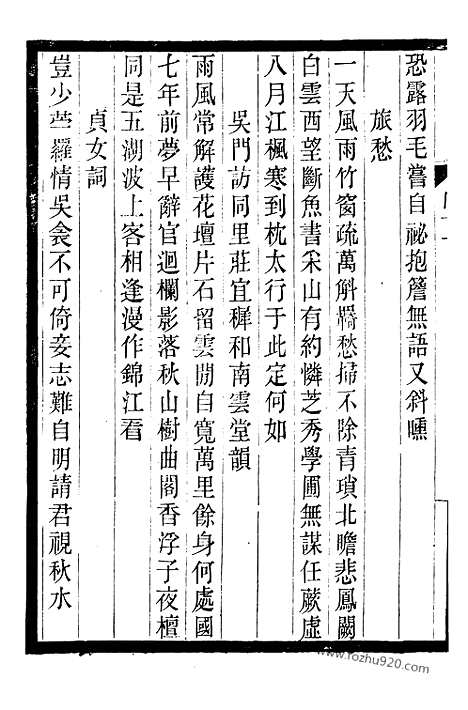 恐露羽毛嘗自祕抱簷無語又斜曛
旅愁
一天風雨竹窗疏萬斛羇愁掃不除青瑣北瞻悲鳳闕
白雲西望斷魚書采山有約憐芝秀學圃無謀任蕨虛
八月江楓寒到枕太行于此定何如
吳門訪同里莊宜穉和南雲堂韻
雨風常解護花壇片石留雲閒自寬萬里餘身何處國
七年前夢早辭官迴欄影落秋山樹曲閣香浮子夜檀
同是五湖波上客相逢漫作錦江看
貞女詞
豈少苎羅情吳衾不可倚妾志難自明請君視秋水
www.fozhu920.com